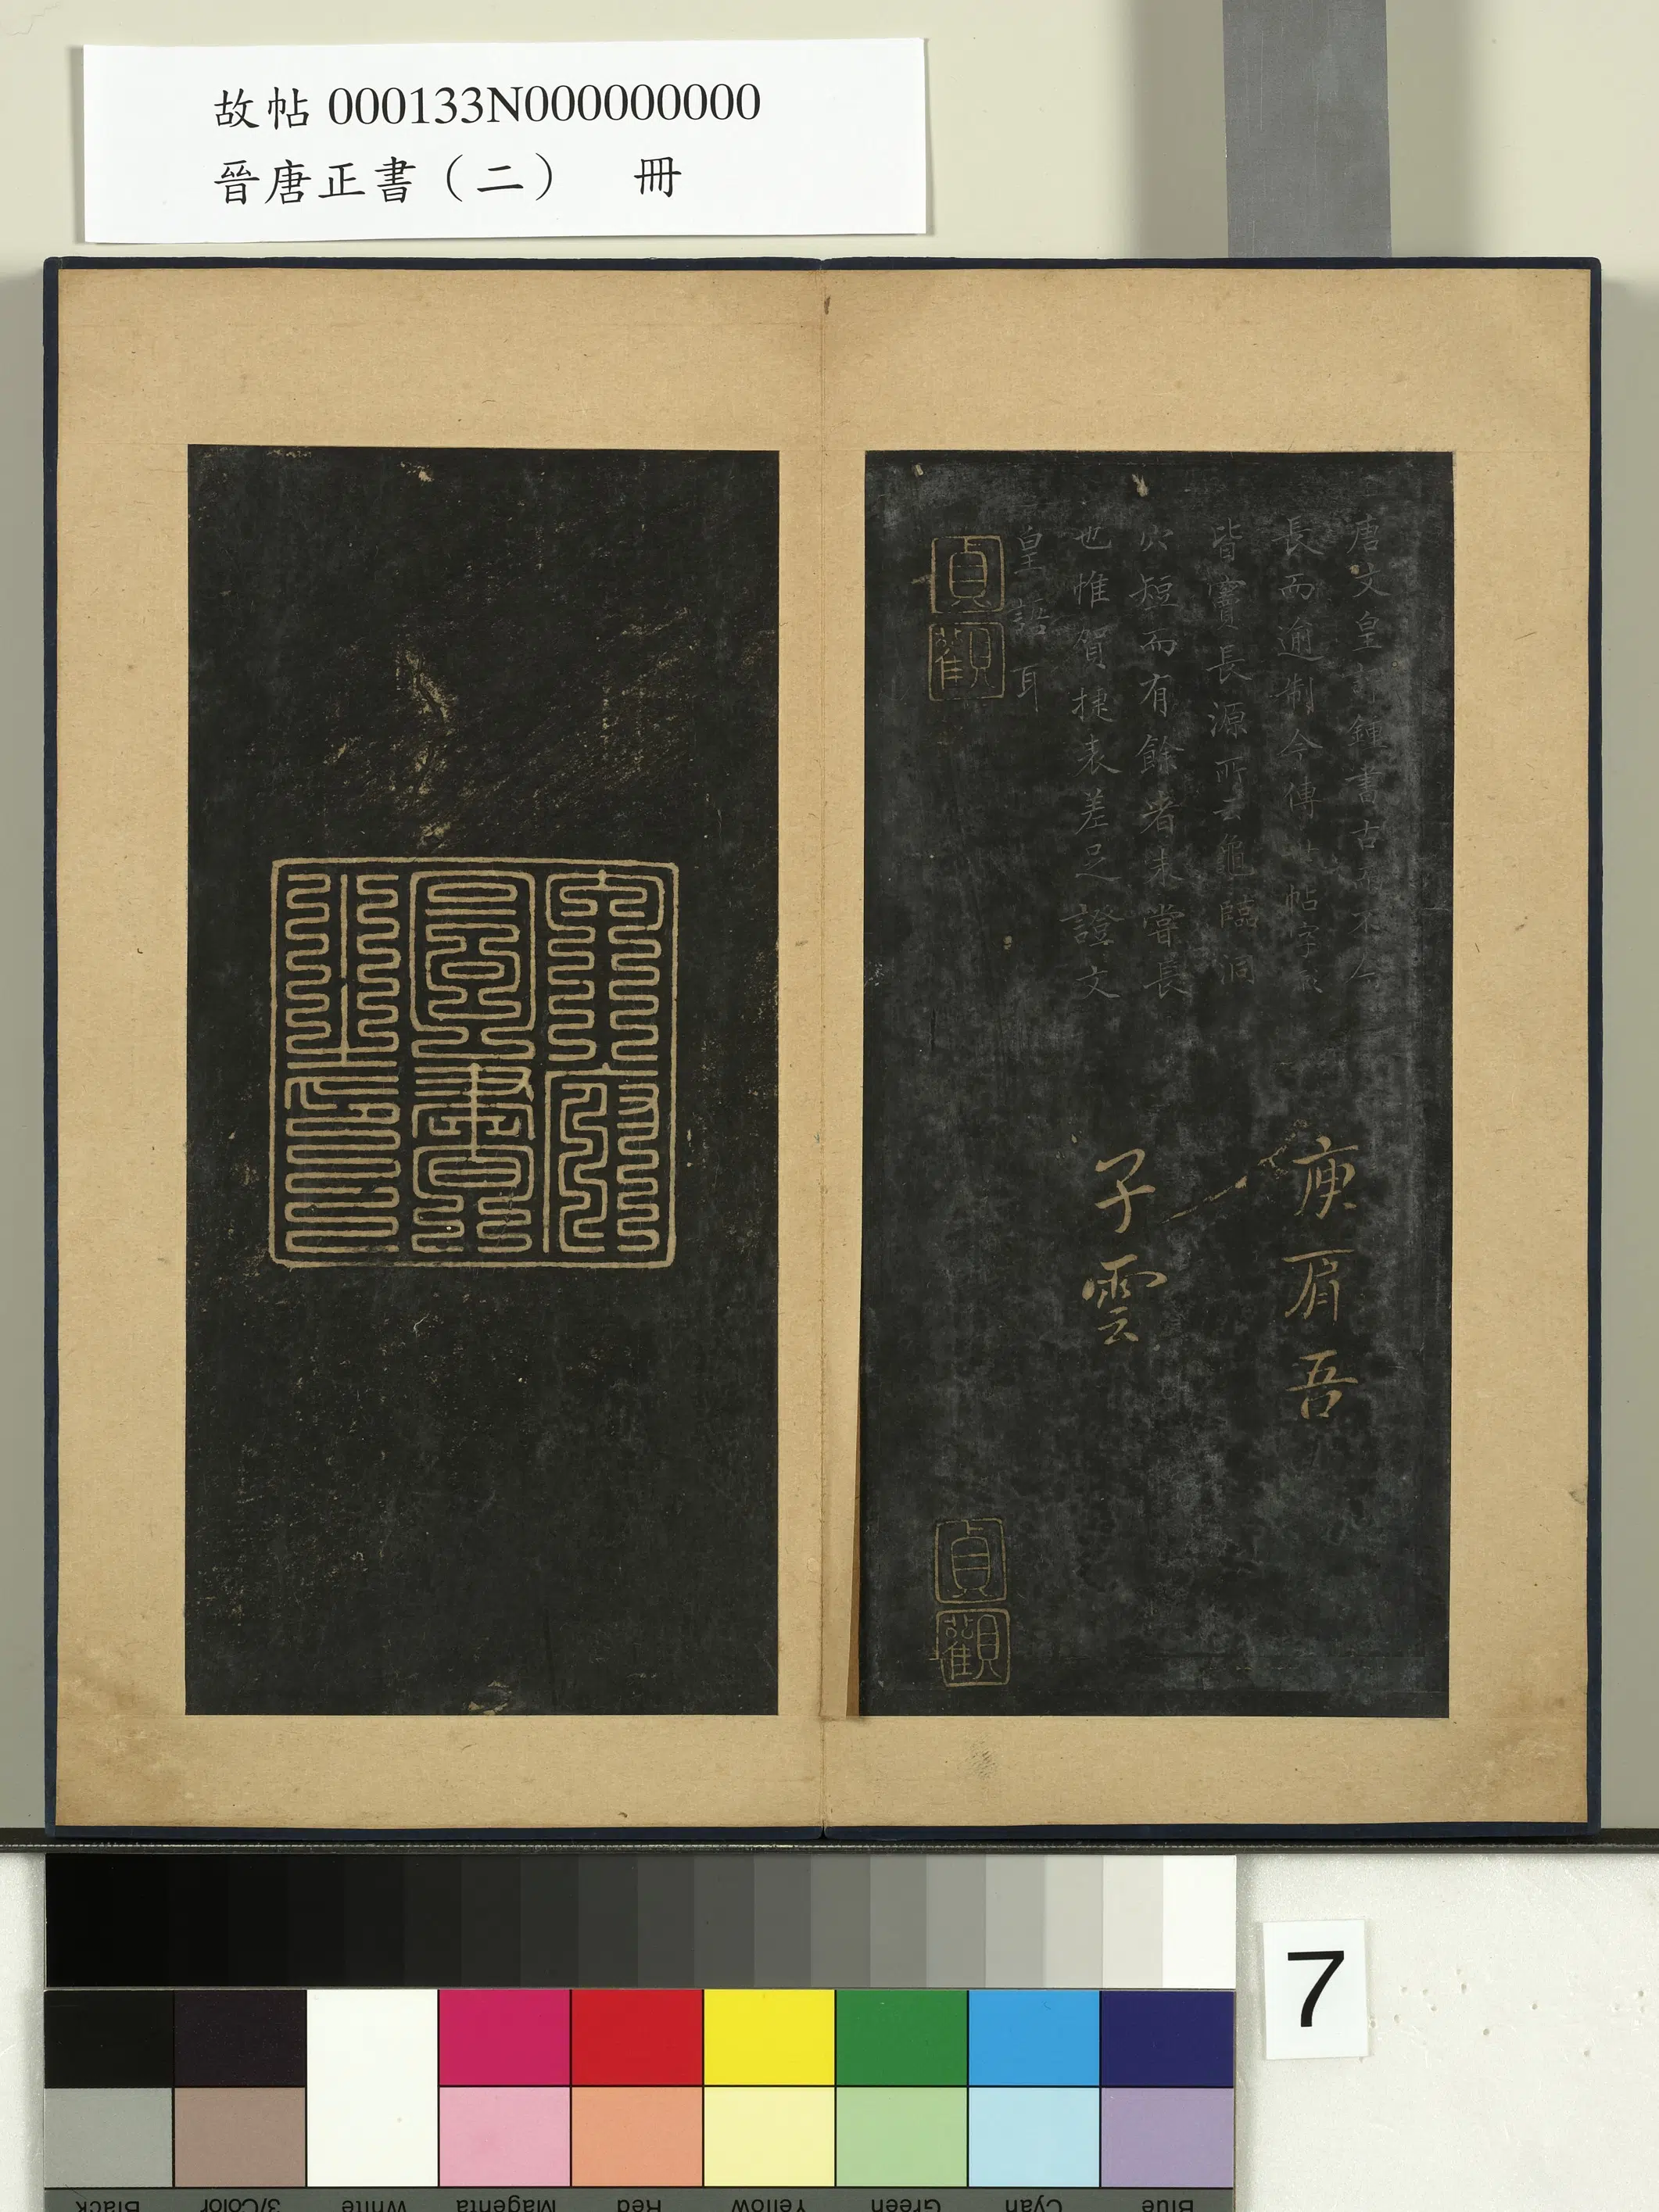 故帖 000133N000000000
晉唐正書（二） 冊
唐文皇評鍾書古而不今
長而逾制今傳世帖字
皆實長源所云龜臨洞
穴短而有餘者未嘗長
也惟賀捷表差足證文
皇語耳
貞觀
庾肩吾
子雲
貞觀
7
Blue Cyan Green Yellow Red Magenta White 3/Color Black